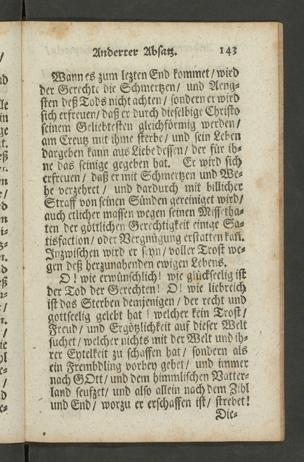 Anderter Absatz. 143
Wann es zum lezten End kommet / wird
der Gerechte die Schmertzen / und Aeng-
sten deß Tods nicht achten / sondern er wird
sich erfreuen / daß er durch dieselbige Christo
seinem Geliebtesten gleichförmig werden /
am Creutz mit ihme sterbe / und sein Leben
dargeben kann aus Liebe dessen / der für ih-
ne das seinige gegeben hat. Er wird sich
erfreuen / daß er mit Schmertzen und We-
he verzehret / und dardurch mit billicher
Straff von seinen Sünden gereiniget wird /
auch etlicher massen wegen seinen Missetha-
ten der göttlichen Gerechtigkeit einige Sa-
tisfaction / oder Vergnügung erstatten kan.
Inzwischen wird er seyn / voller Trost we-
gen deß herzunahenden ewigen Lebens.
O! wie erwünschlich! wie glückseelig ist
der Tod der Gerechten! O! wie liebreich
ist das Sterben demjenigen / der recht und
gottseelig gelebt hat! welcher kein Trost /
Freud / und Ergötzlichkeit auf dieser Welt
suchet / welcher nichts mit der Welt und ih-
rer Eytelkeit zu schaffen hat / sondern als
ein Frembdling vorbey gehet / und immer
nach GOtt / und dem himmlischen Vatter-
land seufzet / und also allein nach dem Zihl
und End / worzu er erschaffen ist / strebet!
Die-